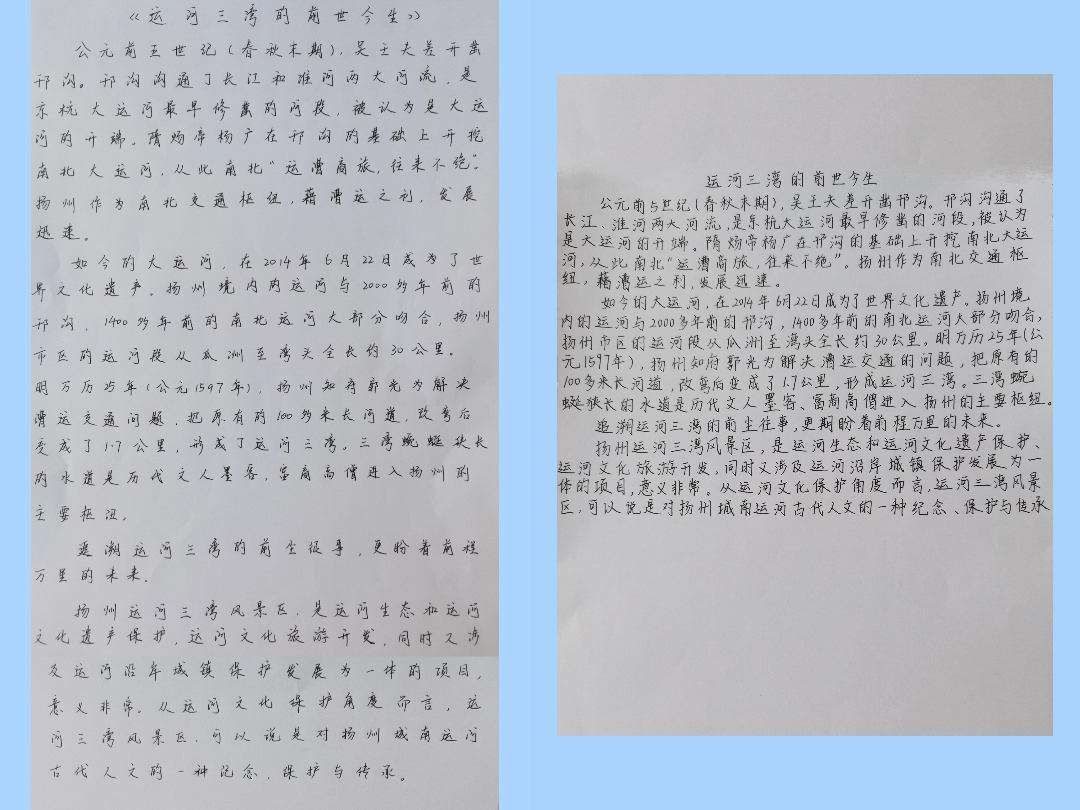 《运河三湾的前世今生》
公元前五世纪(春秋末期),吴王夫差开凿
邗沟。邗沟沟通了长江和淮河两大河流,是
京杭大运河最早修凿的河段,被认为是大运
河的开端。隋炀帝杨广在邗沟的基础上开挖
南北大运河,从此南北“运漕商旅,往来不绝”。
扬州作为南北交通枢纽,藉漕运之利,发展
迅速。
如今的大运河,在2014年6月22日成为了世
界文化遗产。扬州境内的运河与2000多年前的
邗沟,1400多年前的南北运河大部分吻合,扬州
市区的运河段从瓜洲至湾头全长约30公里。
明万历25年(公元1597年),扬州知府郭光为解决
漕运交通问题,把原有的100多米长河道,改弯后
变成了1.7公里,形成了运河三湾。三湾蜿蜒狭长
的水道是历代文人墨客,富商高僧进入扬州的
主要枢纽。
追溯运河三湾的前尘往事,更盼着前程
万里的未来。
扬州运河三湾风景区,是运河生态和运河
文化遗产保护,运河文化旅游开发,同时又涉
及运河沿岸城镇保护发展为一体的项目,
意义非常。从运河文化保护角度而言,运
河三湾风景区,可以说是对扬州城南运河
古代人文的一种纪念、保护与传承。
运河三湾的前世今生
公元前5世纪(春秋末期),吴王夫差开凿邗沟。邗沟沟通了
长江、淮河两大河流,是京杭大运河最早修凿的河段,被认为
是大运河的开端。隋炀帝杨广在邗沟的基础上开挖南北大运
河,从此南北“运漕商旅,往来不绝”。扬州作为南北交通枢
纽,藉漕运之利,发展迅速。
如今的大运河,在2014年6月22日成为了世界文化遗产。扬州境
内的运河与2000多年前的邗沟,1400多年前的南北运河大部分吻合,
扬州市区的运河段从瓜洲至湾头全长约30公里。明万历25年(公
元1597年),扬州知府郭光为解决漕运交通的问题,把原有的
100多米长河道,改弯后变成了1.7公里,形成运河三湾。三湾蜿
蜒狭长的水道是历代文人墨客、富商高僧进入扬州的主要枢纽。
追溯运河三湾的前尘往事,更期盼着前程万里的未来。
扬州运河三湾风景区,是运河生态和运河文化遗产保护、
运河文化旅游开发,同时又涉及运河沿岸城镇保护发展为一
体的项目,意义非常。从运河文化保护角度而言,运河三湾风景
区,可以说是对扬州城南运河古代人文的一种纪念、保护与传承